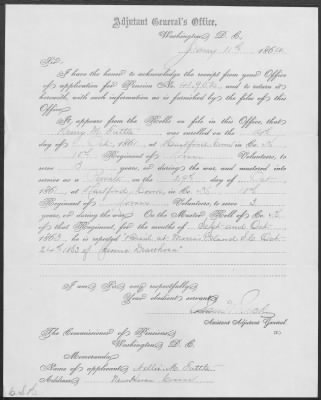 Adjutant General's Office,
Washington, D. C.
11th 1864
Sir:
I have the honor to acknowledge the receipt from your Office
of application for Pension No. and to return it
herewith, with such information as is furnished by the files of this
Office.
It appears from the Rolls on file in this Office, that
Henry W. Tuttle was enrolled on the
day of Oct, 1861 at Hartford Conn in Co.
10th Regiment of Conn Volunteers, to
serve 3 years, or during the war, and mustered into
service as a Private on the day of
1861, at Hartford, Conn, in Co. 10th
Regiment of Conn Volunteers, to serve 3
years, or during the war. On the Muster Roll of Co.
of that Regiment, for the months of Sept and Oct
1863, he is reported "Died at Morris Island S.C. Oct
24th 1863 of Chronic Diarrhoea"
I am, Sir, very respectfully,
Your obedient servant,
Assistant Adjutant General
The Commissioner of Pensions,
Washington, D. C.
Memoranda:
Name of applicant, Nellie M. Tuttle
Address, New Haven Conn